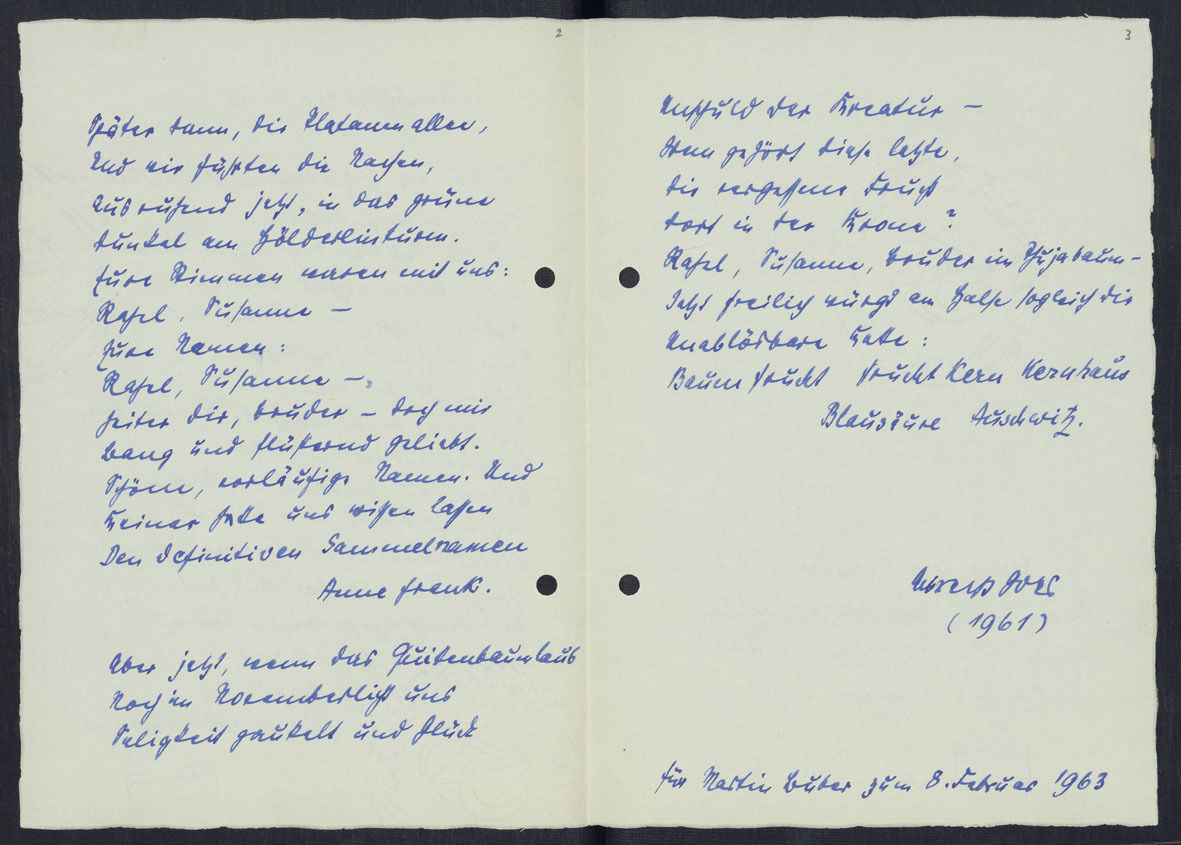 2
Später dann, die Platanenallee,
Und wir führten die Nachen,
Ausruhend jetzt, in das grüne
Dunkel am Hölderlinturm.
Eure Stimmen waren mit uns:
Rahel, Susanne —
Eure Namen:
Rahel, Susanne —,
Heiter dir, Bruder — doch mir
Bang und flüsternd geliebt.
Schöne, vorläufige Namen. Und
Keiner hatte uns wissen lassen
Den definitiven Sammelnamen
Anne Frank.
Aber jetzt, wenn das Quittenbaumlaub
Noch im Novemberlicht uns
Seligkeit gaukelt und Glück
3
Unschuld der Kreatur —
Wem gehört diese letzte,
Die vergessene Frucht
Dort in der Krone?
Rahel, Susanne, Bruder im Thujabaum —
Jetzt freilich würgt am Halse sogleich die
Unablösbare Kette:
Baum Frucht Frucht Kern Kernhaus
Blausäure Auschwitz.
Albrecht Goes
(1961)
Für Martin Buber zum 8. Februar 1963